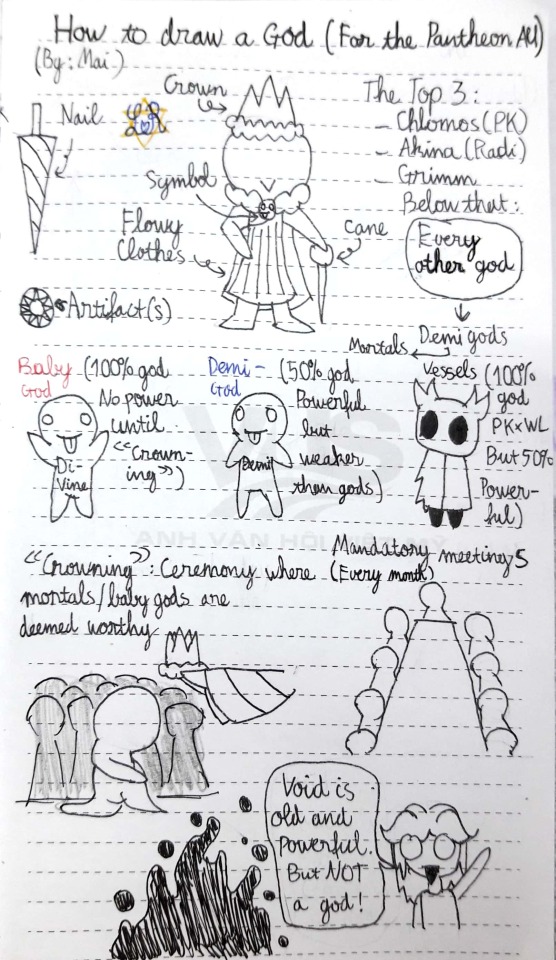 How to draw a God (For the Pantheon AU)
(By: Mai)
Crown
Nail
Symbol
Flowy
Clothes
Cane
Artifact(s)
The Top 3:
- Chlomos (PK)
- Akina (Radi)
- Grimm
Below that:
Every
other god
Demi gods
Mortals
Baby
God
(100% god
No power
until
"Crown-
ing")
Di-
Vine
Demi-
God
(50% god
Powerful
but
weaker
than gods)
Demi
Vessels (100%
god
PK×WL
But 50%
Power-
ful)
ANH VĂN HỘI
"Crowning": Ceremony where
mortals/baby gods are
deemed worthy
Mandatory meetings
(Every month)
Void is
old and
powerful.
But NOT
a god!